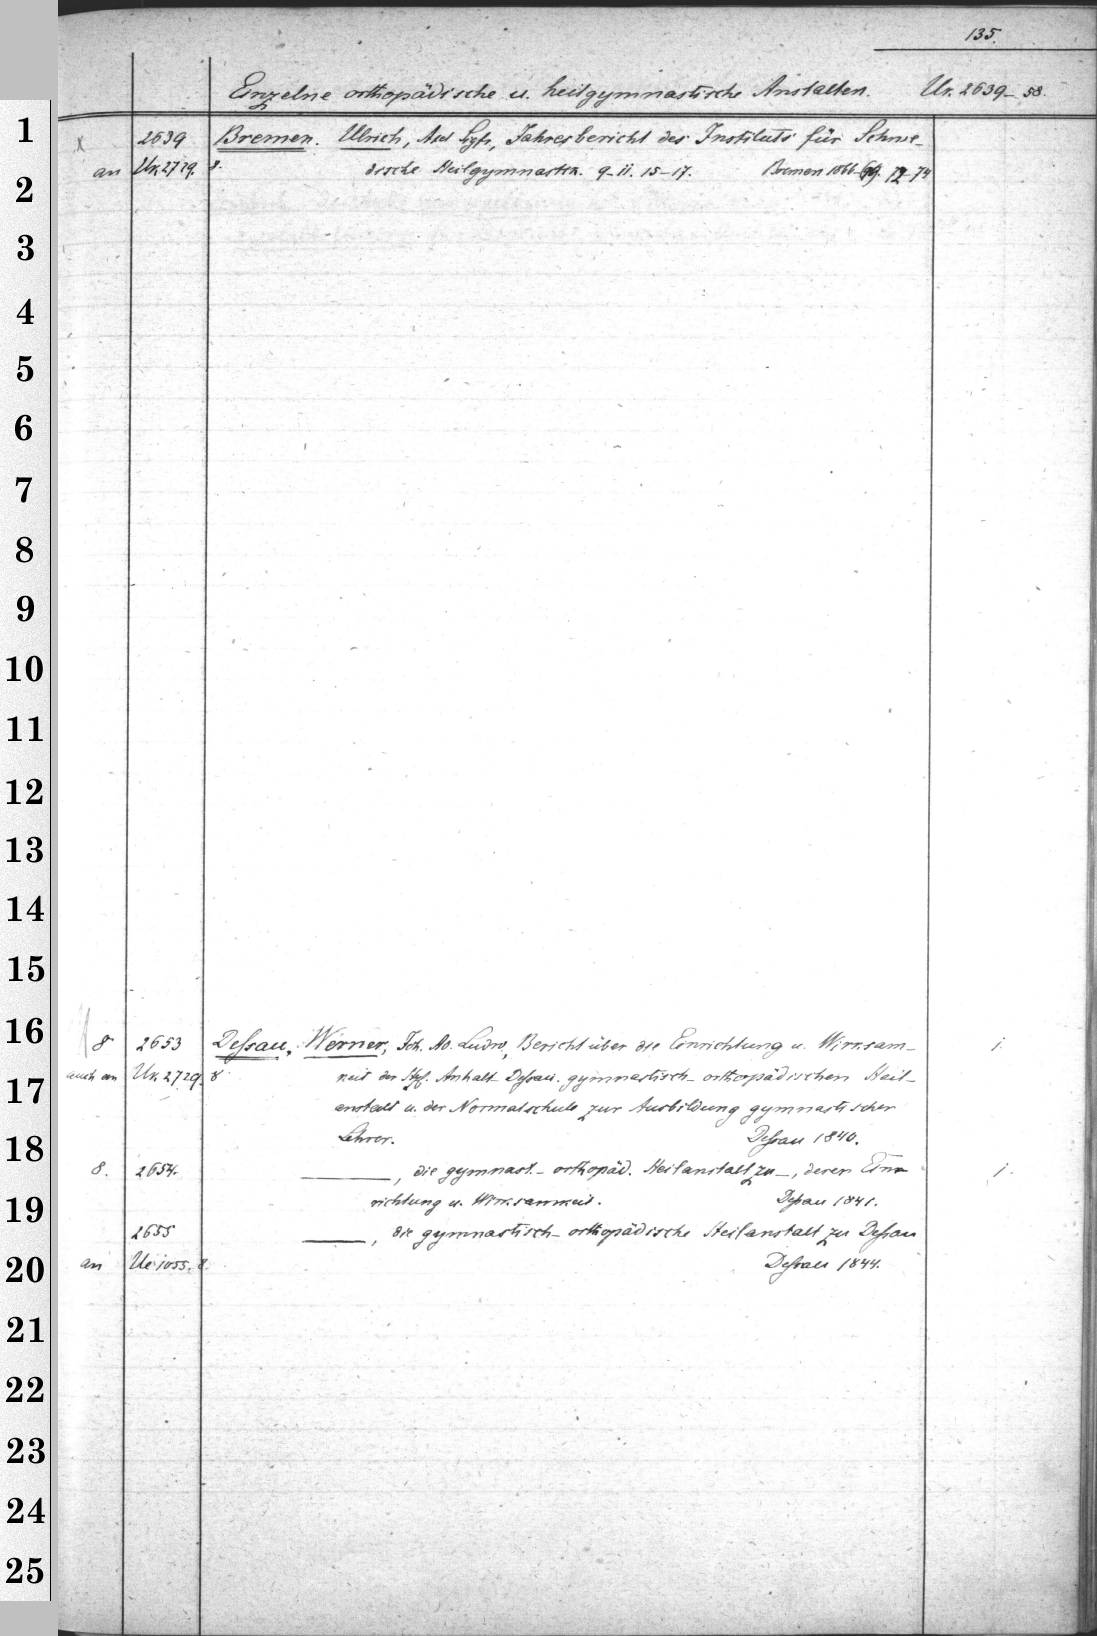 135.
Einzelne orthopädische u. heilgymnastische Anstalten. Ur. 2639-58.
1
x 2639 Bremen. Ulrich, Axel Sigfr., Jahresbericht des Instituts für Schwe-
an Ur. 2729. 8. dische Heilgymnastik. 9-11. 15-17. Bremen 1866-69. 72-74
2
3
4
5
6
7
8
9
10
11
12
13
14
15
16
8 2653 Dessau, Werner, Joh. Ad. Ludw., Bericht über die Einrichtung u. Wirksam- j.
auch an Ur. 2729. 8 keit der Hzl. Anhalt-Dessau. gymnastisch-orthopädischen Heil-
17
anstalt u. der Normalschule zur Ausbildung gymnastischer
Lehrer. Dessau 1840.
18
8. 2654. ———, die gymnast.-orthopäd. Heilanstalt zu —, deren Ein- j.
richtung u. Wirksamkeit. Dessau 1841.
19
2655 ———, die gymnastisch-orthopädische Heilanstalt zu Dessau
an Ue 1055. 8. Dessau 1844.
20
21
22
23
24
25